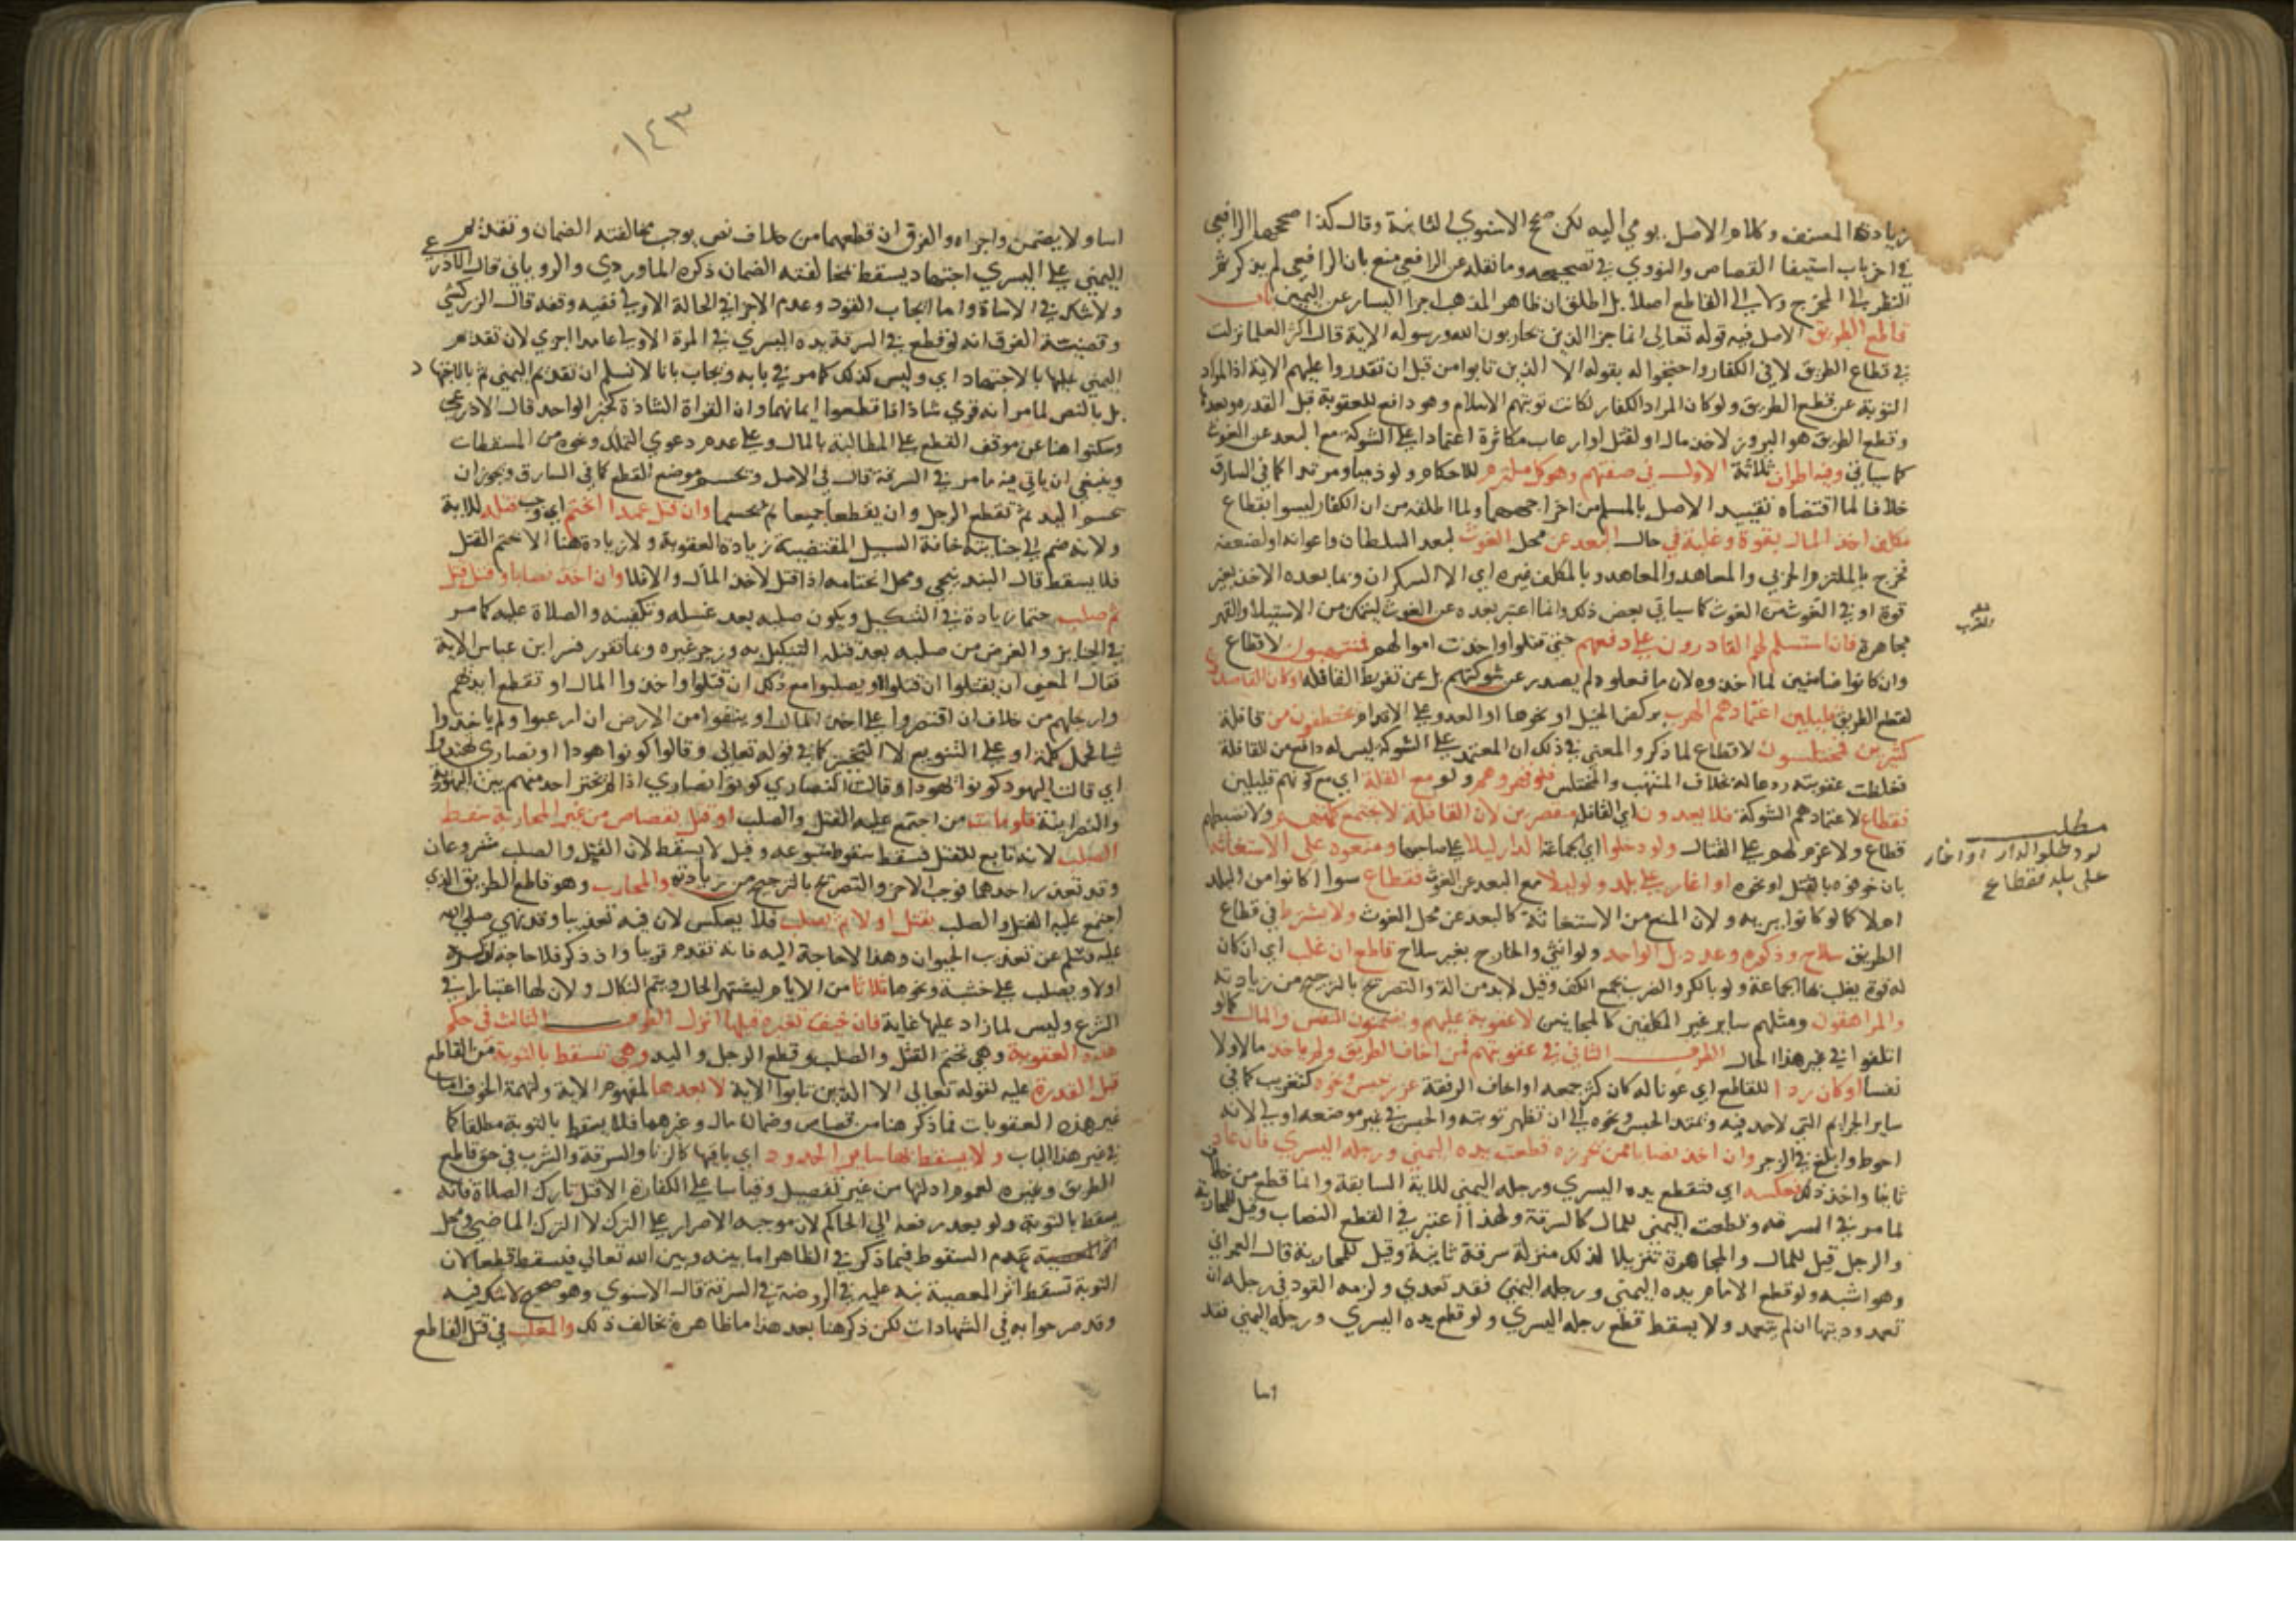 زيادة المصنف وكلام الاصل يومي اليه لكن صحح الاسنوي الثانية وقال كذا صححها الرافعي
في اخر باب استيفا القصاص والنووي في تصحيحه وما نقله عن الرافعي منع بان الرافعي لم يذكر ثم
النظر الى المخرج ولا الى القاطع اصلا بل اطلق ان ظاهر المذهب اجزا اليسار عن اليمين باب
قاطع الطريق الاصل فيه قوله تعالى انما جزا الذين يحاربون الله ورسوله الاية قال اكثر العلما نزلت
في قطاع الطريق لا في الكفار واحتجوا له بقوله الا الذين تابوا من قبل ان تقدروا عليهم الاية اذ المراد
التوبة عن قطع الطريق ولو كان المراد الكفار لكانت توبتهم الاسلام وهو دافع للعقوبة قبل القدرة وبعدها
وقطع الطريق هو البروز لاخذ مال او لقتل او ارعاب مكابرة اعتمادا على الشوكة مع البعد عن الغوث
كما سياتي وفيه اطراف ثلاثة الاول في صفتهم وهو كل ملتزم للاحكام ولو ذميا ومرتدا كما في السارق
خلافا لما اقتضاه تقييد الاصل بالمسلم من اخراجهما ولما اطلقه من ان الكفار ليسوا بقطاع
مكلف اخذ المال بقوة وغلبة في حال البعد عن محل الغوث لبعد السلطان واعوانه او لضعفه
فخرج بالملتزم الحربي والمعاهد وبالمكلف غيره اي الا السكران وبما بعده الاخذ بغير
قوة او في الغوث من الغوث كما سياتي بعض ذلك وانما اعتبر بعده عن الغوث ليتمكن من الاستيلا والقهر
مجاهرة فان استسلم لهم القادرون على دفعهم حتى قتلوا او اخذت اموالهم فمنتهبون لا قطاع
وان كانوا ضامنين لما اخذوه لان ما فعلوه لم يصدر عن شوكتهم بل عن تفريط القافلة او كان القاصدون
لقطع الطريق قليلين اعتمادهم الهرب بركض الخيل او نحوها او العدو على الاقدام يختطفون من قافلة
كثيرين فمختلسون لا قطاع لما ذكر والمعنى في ذلك ان المعتمد على الشوكة ليس له دافع من القافلة
فغلظت عقوبته ردعا له بخلاف المنتهب والمختلس فلو قهروهم ولو مع القلة اي مع كونهم قليلين
فقطاع لاعتمادهم الشوكة فلا يعدون اي القافلة مقصرين لان القافلة لا تجتمع كلمتهم ولا تضبطهم
قطاع ولا عزم لهم على القتال ولو دخلوا اي جماعة الدار ليلا على صاحبها ومنعوه على الاستغاثة
بان خوفوه بالقتل او نحوه او اغاروا على بلد ولو ليلا مع البعد عن الغوث فقطاع سوا اكانوا من البلد
ام لا كما لو كانوا ببرية ولان المنع من الاستغاثة كالبعد عن محل الغوث ولا يشترط في قطاع
الطريق سلاح وذكورة وعدد بل الواحد ولو انثى والخارج بغير سلاح قاطع ان غلب اي ان كان
له قوة يغلب بها الجماعة ولو باللكز والضرب بجمع الكف وقيل لا بد من الة والتصريح بالترجيح من زيادته
والمراهقون ومثلهم ساير غير المكلفين كالمجانين لا عقوبة عليهم ويضمنون النفس والمال كما لو
اتلفوا في غير هذا الحال الطرف الثاني في عقوبتهم فمن اخاف الطريق ولم ياخذ مالا ولا
نفسا او كان ردا للقاطع اي عونا له كان كثر جمعه او اخاف الرفقة عزر بحبس ونحوه كتغريب كما في
ساير الجرايم التي لا حد فيها ويمتد الحبس ونحوه الى ان تظهر توبته والحبس في غير موضعه اولى لانه
احوط وابلغ في الزجر وان اخذ نصابا ممن حرزه قطعت يده اليمنى ورجله اليسرى فان عاد
ثانيا واخذ ذلك بعكسه اي فتقطع يده اليسرى ورجله اليمنى للاية السابقة وانما قطع من خلاف
لما مر في السرقة وقطعت اليمنى للمال كالسرقة ولهذا اعتبر في القطع النصاب وقيل للمحاربة
والرجل قيل للمال والمجاهرة تنزيلا لذلك منزلة سرقة ثانية وقيل للمحاربة قال العمراني
وهو اشبه ولو قطع الامام يده اليمنى ورجله اليمنى فقد تعدى ولزمه القود في رجله ان
تعمد وديتها ان لم يتعمد ولا يسقط قطع رجله اليسرى ولو قطع يده اليسرى ورجله اليمنى فقد
اسا
مطلب
لو دخلوا الدار او اغار
على بلد فقطاع
١٤٣
اسا ولا يضمن واجزاه والفرق ان قطعهما من خلاف نص يوجب مخالفته الضمان وتقديم
اليمنى على اليسرى اجتهاد يسقط بمخالفته الضمان ذكره الماوردي والروياني قال الاذرعي
ولا شك في الاساة واما ايجاب القود وعدم الاجزا في الحالة الاولى ففيه وقفة قال الزركشي
وقضيته الفرق انه لو قطع في السرقة يده اليسرى في المرة الاولى عامدا اجزى لان تقديم
اليمنى عليها بالاجتهاد اي وليس كذلك كما مر في بابه ويجاب بانا لا نسلم ان تقديم اليمنى ثم بالاجتهاد
بل بالنص لما مر انه قري شاذا فاقطعوا ايمانهما وان القراة الشاذة كخبر الواحد قال الاذرعي
وسكتوا هنا عن موقف القطع على المطالبة بالمال وعلى عدم دعوى التملك ونحوه من المسقطات
وينبغي ان ياتي فيه ما مر في السرقة قال في الاصل وتحسم موضع القطع كما في السارق ويجوز ان
تحسم اليد ثم تقطع الرجل وان يقطعا جميعا ثم يحسما وان قتل عمدا انحتم اي وجب قتله للاية
ولانه ضم الى جنايته اخافة السبيل المقتضية زيادة العقوبة ولا زيادة هنا الا تحتم القتل
فلا يسقط قال البندنيجي ومحل انحتامه اذا قتل لاخذ المال والا فلا وان اخذ نصابا وقتل قتل
ثم صلب حتما زيادة في التنكيل ويكون صلبه بعد غسله وتكفينه والصلاة عليه كما مر
في الجنايز والغرض من صلبه بعد قتله التنكيل به وزجر غيره وبما تقرر فسر ابن عباس الاية
فقال المعنى ان يقتلوا ان قتلوا او يصلبوا مع ذلك ان قتلوا واخذوا المال او تقطع ايديهم
وارجلهم من خلاف ان اقتصروا على اخذ المال او ينفوا من الارض ان ارعبوا ولم ياخذوا
شيا فحمل كلمة او على التنويع لا التخيير كما في قوله تعالى وقالوا كونوا هودا او نصارى تهتدوا
اي قالت اليهود كونوا هودا وقالت النصارى كونوا نصارى اذ لم يخير احد منهم بين اليهودية
والنصرانية فلو مات من اجتمع عليه القتل والصلب او قتل بقصاص من غير المحاربة سقط
الصلب لانه تابع للقتل فسقط بسقوط متبوعه وقيل لا يسقط لان القتل والصلب مشروعان
وقد تعذر احدهما فوجب الاخر والتصريح بالترجيح من زيادته والمحارب وهو قاطع الطريق الذي
اجتمع عليه القتل والصلب يقتل اولا ثم يصلب فلا يعكس لان فيه تعذيبا وقد نهى صلى الله
عليه وسلم عن تعذيب الحيوان وهذا لا حاجة اليه فانه تقدم قريبا واذ ذكر فلا حاجة لقوله
اولا ويصلب على خشبة ونحوها ثلاثا من الايام ليشتهر الحال ويتم النكال ولان لها اعتبارا في
الشرع وليس لما زاد عليها غاية فان خيف تغيره قبلها انزل الطرف الثالث في حكم
هذه العقوبة وهي تحتم القتل والصلب وقطع الرجل واليد وهي تسقط بالتوبة من القاطع
قبل القدرة عليه لقوله تعالى الا الذين تابوا الاية لا بعدها لمفهوم الاية ولتهمة الخوف اما
غير هذه العقوبات مما ذكر هنا من قصاص وضمان مال وغيرهما فلا يسقط بالتوبة مطلقا كما
في غير هذا الباب ولا يسقط بها ساير الحدود اي باقيها كالزنا والسرقة والشرب في حق قاطع
الطريق وغيره لعموم ادلتها من غير تفصيل وقياسا على الكفارة الا قتل تارك الصلاة فانه
يسقط بالتوبة ولو بعد رفعه الى الحاكم لان موجبه الاصرار على الترك لا الترك الماضي ومحل
عدم السقوط فيما ذكر في الظاهر اما بينه وبين الله تعالى فيسقط قطعا لان
التوبة تسقط اثر المعصية نبه عليه في الروضة في السرقة قال الاسنوي وهو صحيح لا شك فيه
وقد صرحوا به في الشهادات لكن ذكر هنا بعد هذا ما ظاهره يخالف ذلك والمغلب في قتل القاطع